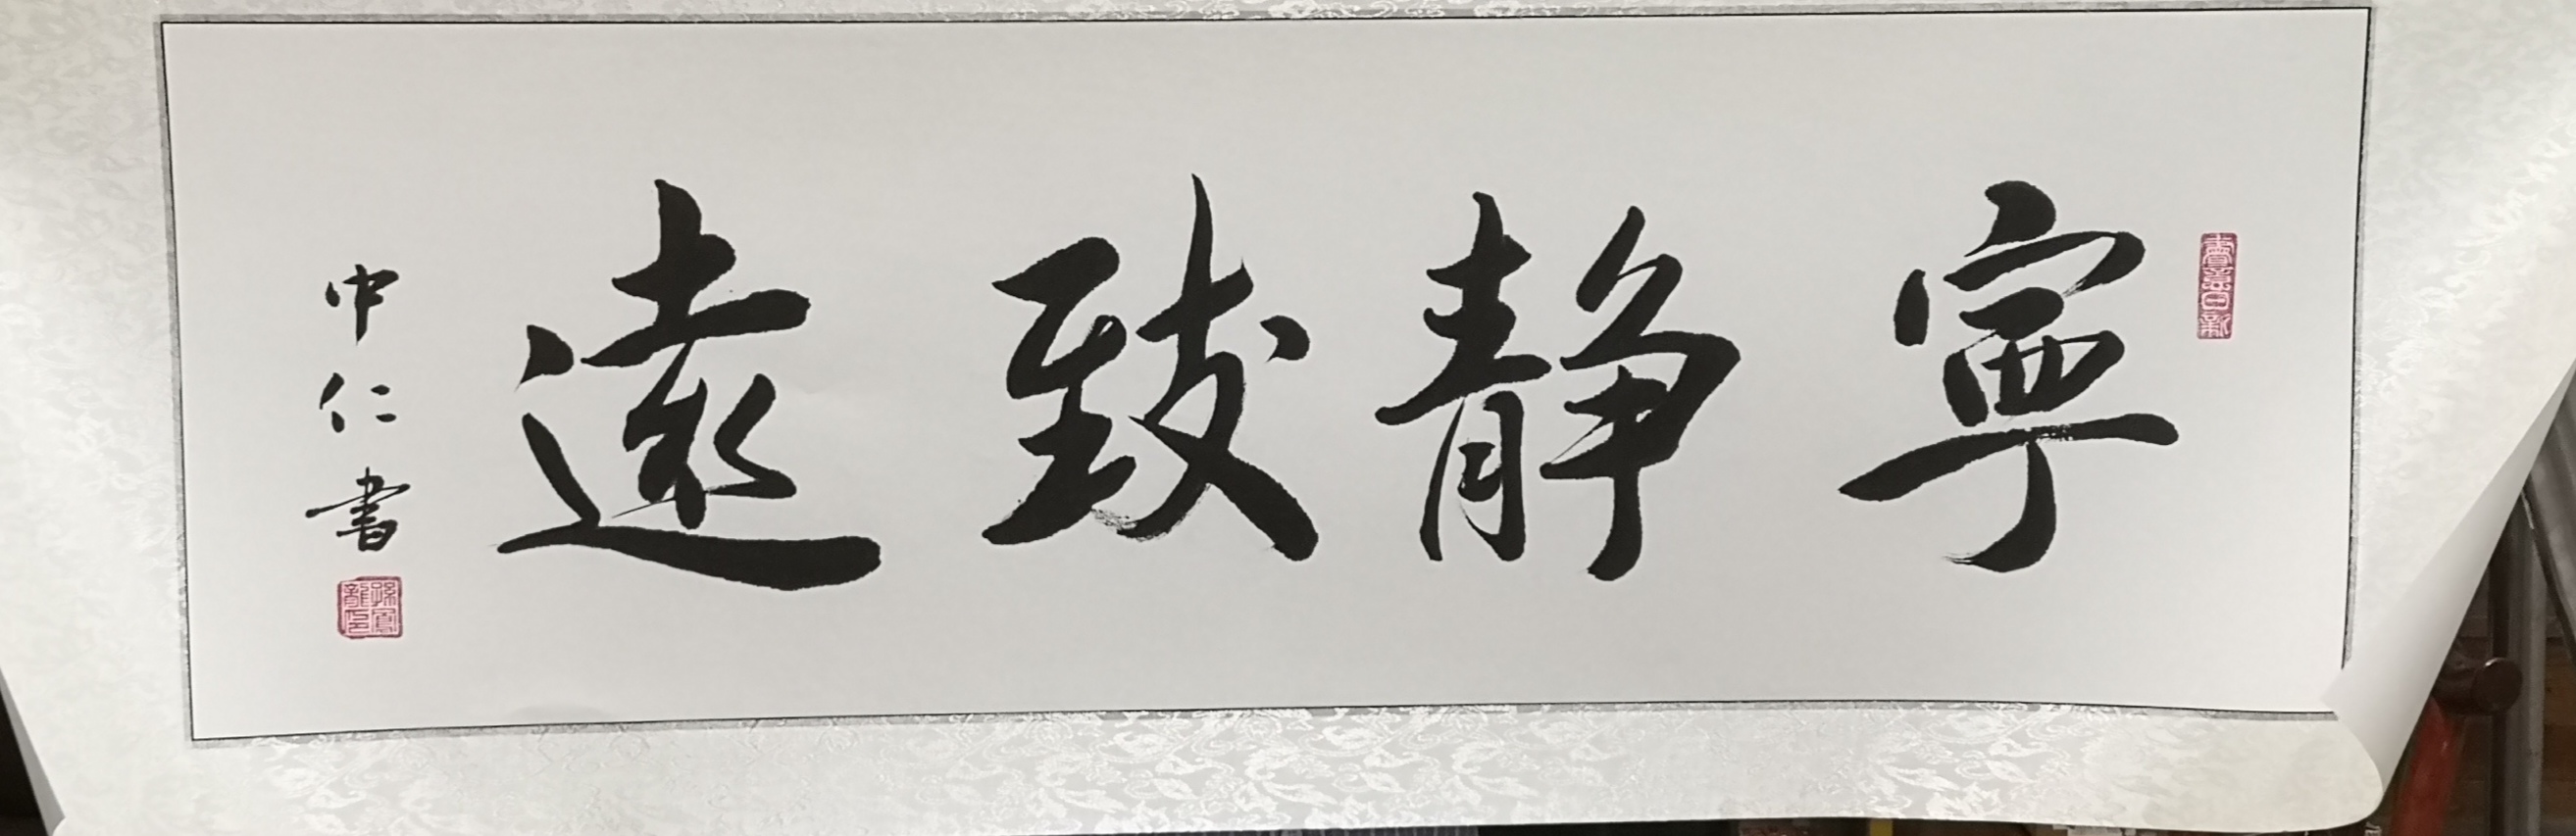 寧静致遠
中仁書